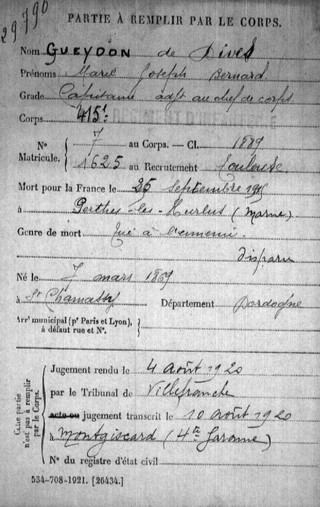 29.790
PARTIE À REMPLIR PAR LE CORPS.
Nom GUEYDON de Dives
Prénoms Marie Joseph Bernard
Grade Capitaine adjt au chef de corps
Corps 415e
N° Matricule. 7 au Corps. — Cl. 1889
1625 au Recrutement Toulouse
Mort pour la France le 25 Septembre 1915
à Perthes-les-Hurlus (Marne)
Genre de mort Tué à l'ennemi.
Disparu
Né le 7 mars 1869
à St Chamassy Département Dordogne
Arrt municipal (pr Paris et Lyon), à défaut rue et N°.
Cette partie n'est pas à remplir par le Corps.
Jugement rendu le 4 Août 1920
par le Tribunal de Villefranche
acte ou jugement transcrit le 10 Août 1920
à Montgiscard (Hte Garonne)
N° du registre d'état civil
534-708-1921. [26434.]